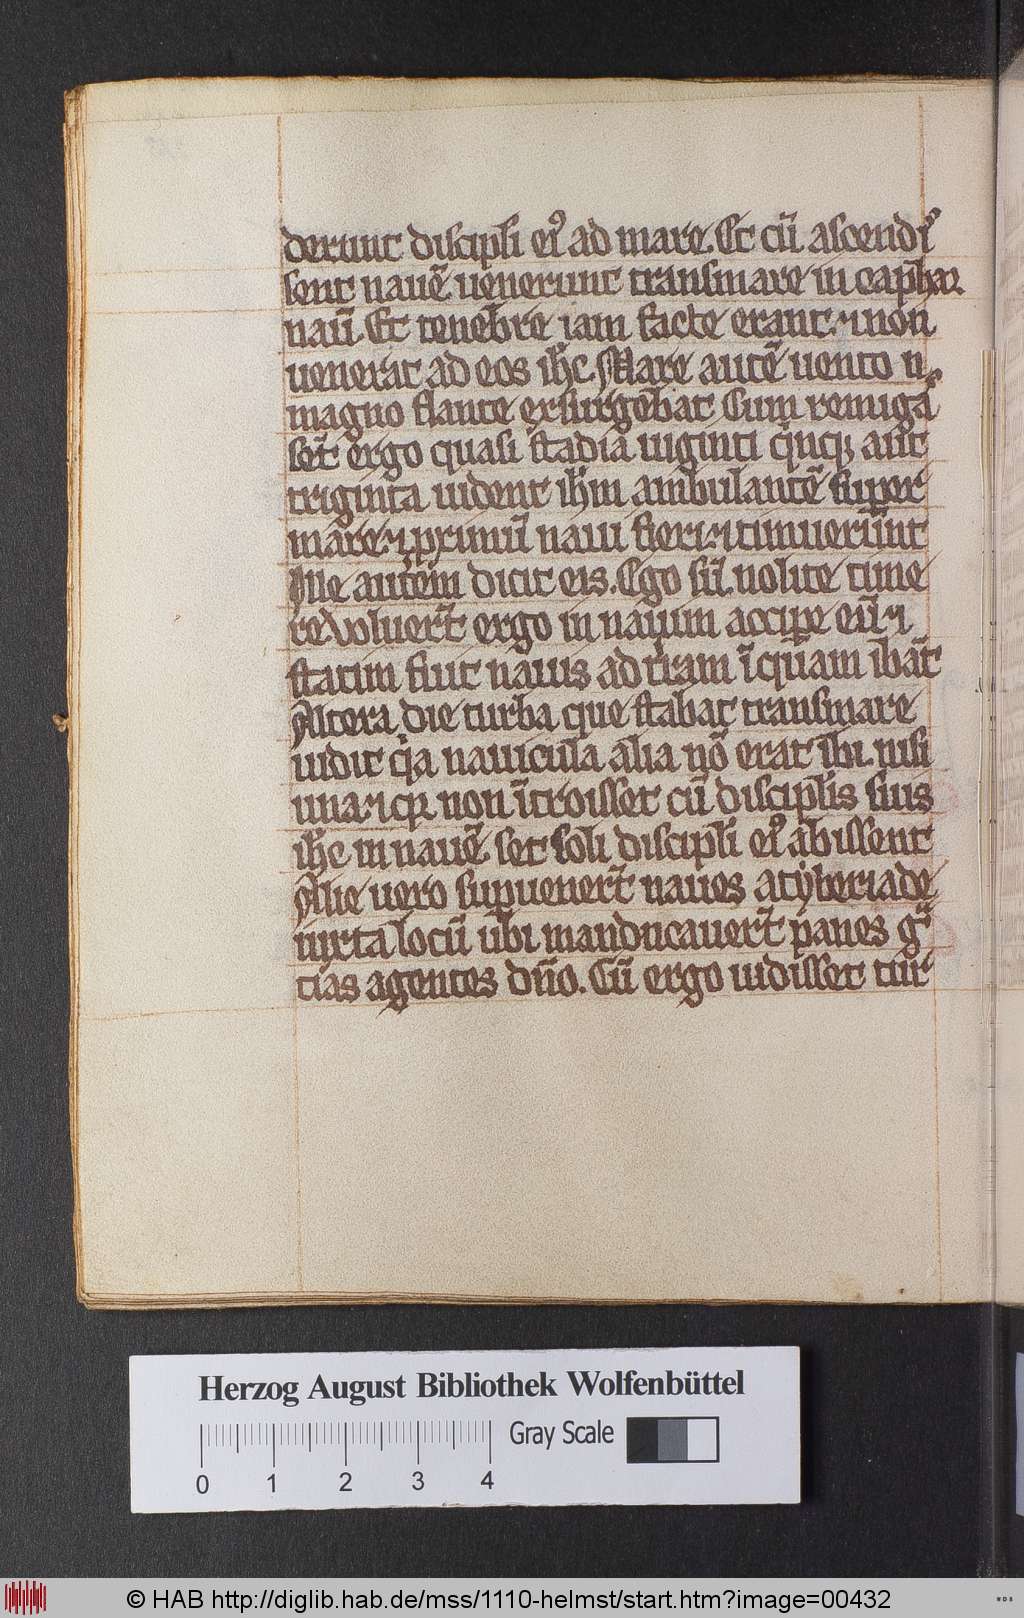 derunt discipli eiꝰ ad mare. Et cū ascendiſ
sent nauē uenerunt transmare in caphar
naū. Et tenebre iam facte erant. ⁊ non
uenerat ad eos ihc. Mare autē uento
magno flante exsurgebat Cum remigaſ
set̄ ergo quasi stadia uiginti qͥnqꝫ aut
triginta uident ihm ambulantē super
mare. ⁊ proximū naui fieri. ⁊ timuerunt
Ille autem dicit eis. Ego sū nolite time
re Voluert̄ ergo in nauim accipe eū. ⁊
statim fiut nauis ad tr̄am ī quam ibāt
Altera die turba que stabat transmare
uidit qͥa nauicula alia nō erat ibi nisi
una. ⁊ qꝛ non ītroisset cū discipl̄is suis
ihc in nauē set soli discipli eiꝰ abissent
Alie uero supuenert̄ naues atyberiade
iuxta locū ubi manducauert̄ panes gͣ
tias agentes dn̄o. Cū ergo uidisset tur
Herzog August Bibliothek Wolfenbüttel
0 1 2 3 4
Gray Scale
© HAB http://diglib.hab.de/mss/1110-helmst/start.htm?image=00432